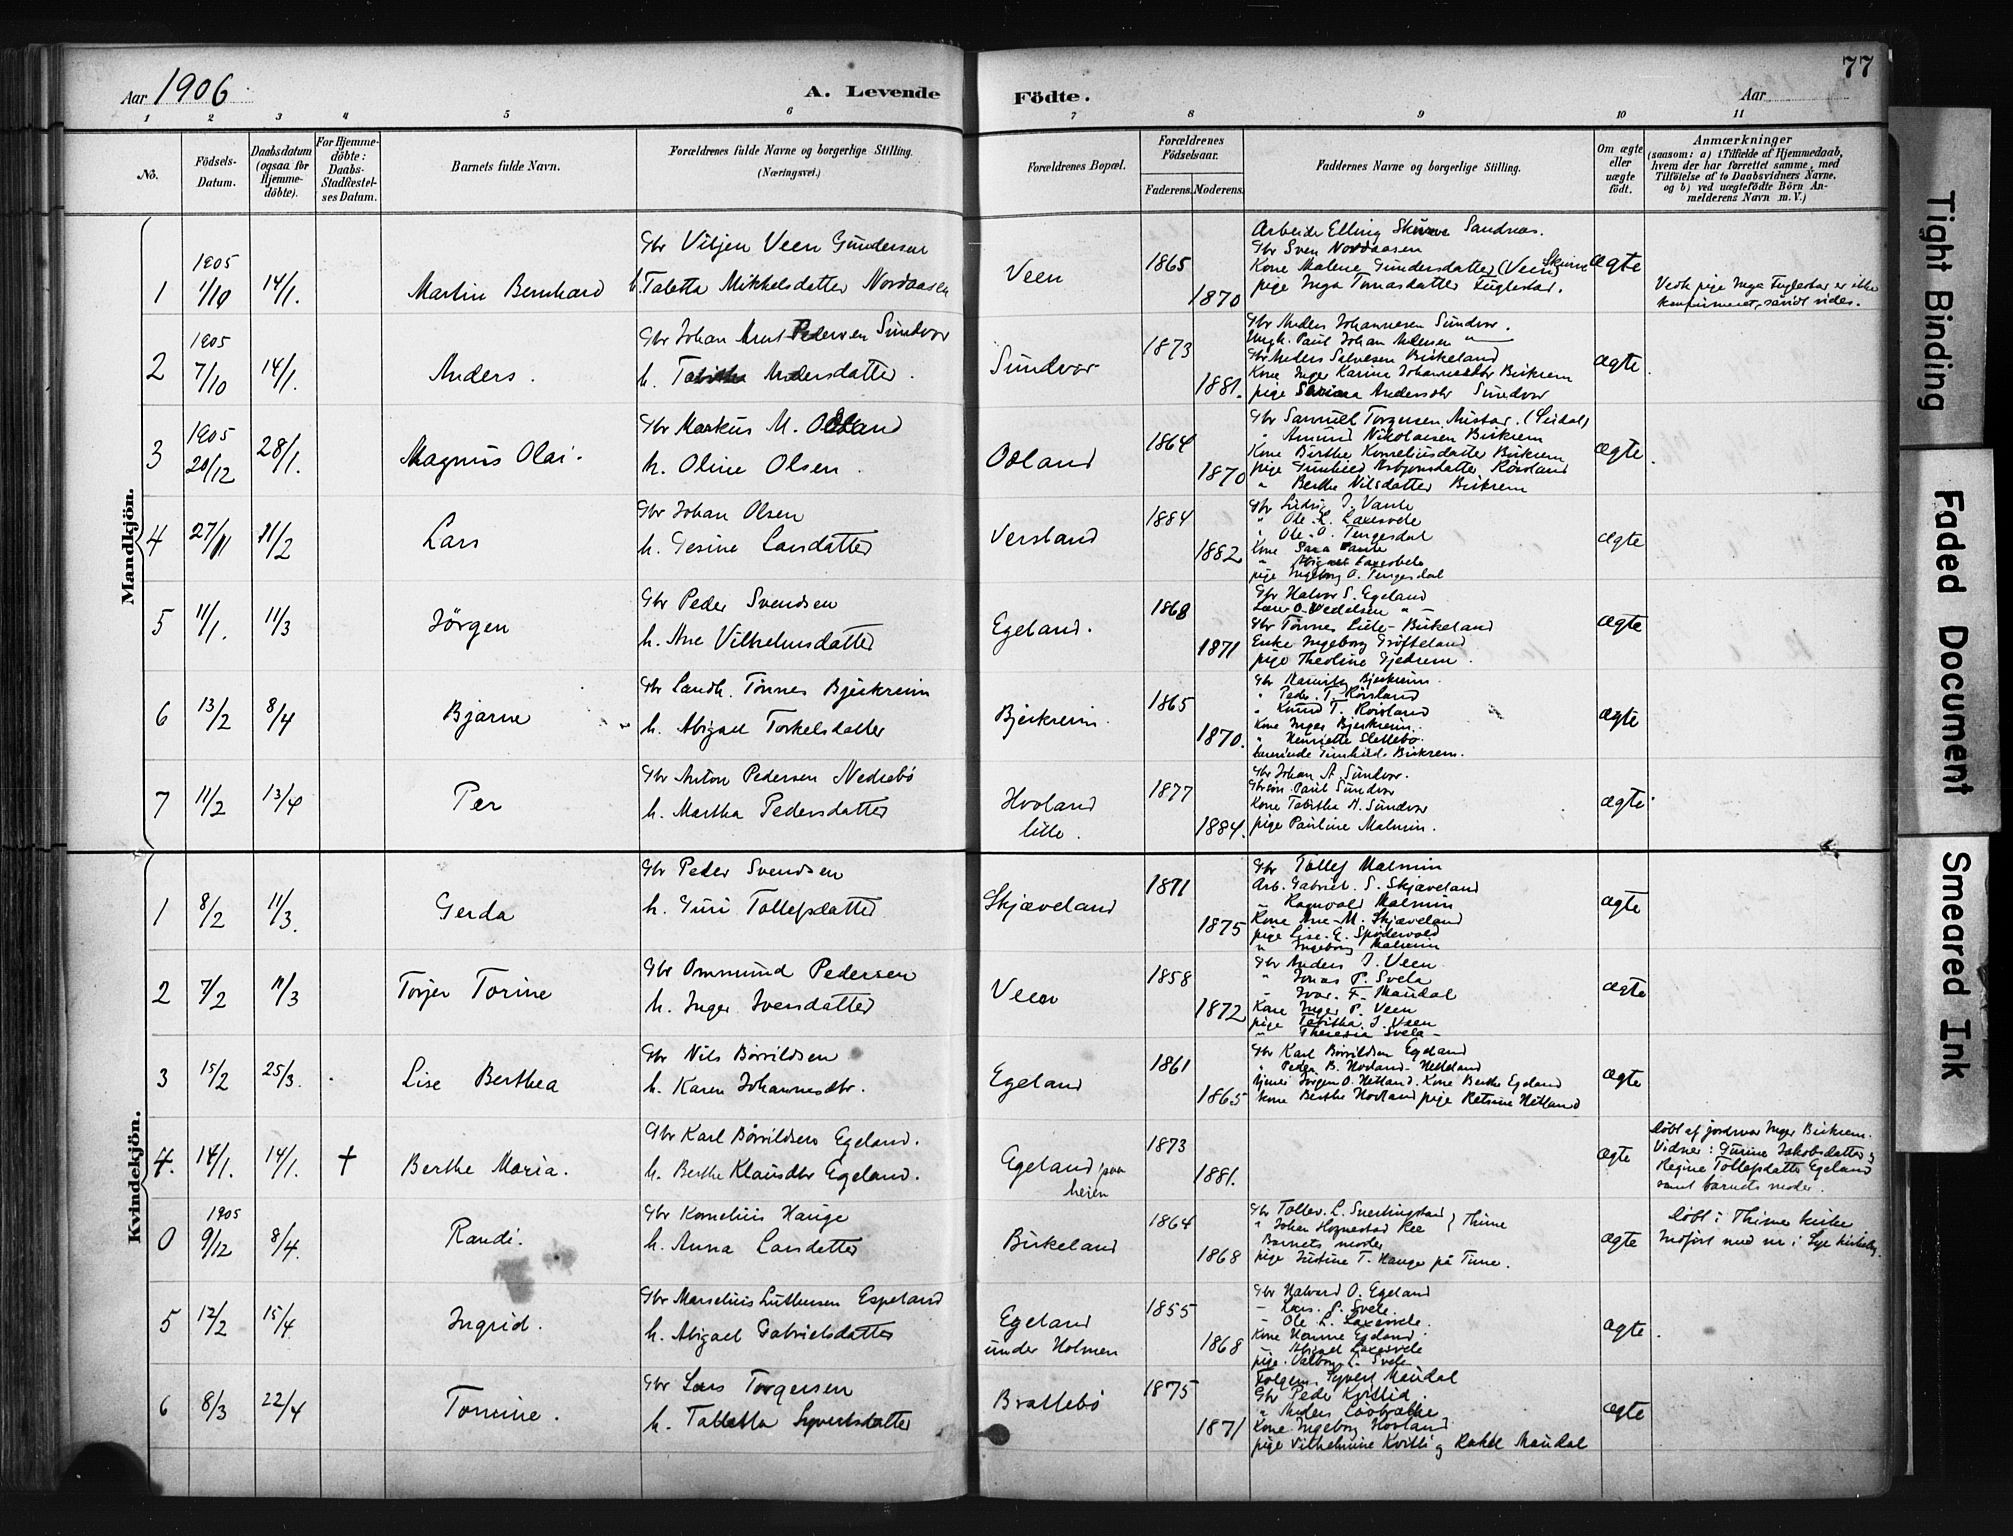 77
Aar 1906.
A. Levende Födte.
Aar
1 2 3 4 5 6 7 8 9 10 11
No.
Födsels-Datum.
Daabsdatum (ogsaa for Hjemme-döbte).
For Hjemme-döbte: Daabs-Stadfæstel-ses Datum.
Barnets fulde Navn.
Forældrenes fulde Navne og borgerlige Stilling. (Næringsvei.)
Forældrenes Bopæl.
Forældrenes Födselsaar.
Faderens. Moderens.
Faddernes Navne og borgerlige Stilling.
Om ægte eller uægte födt.
Anmærkninger
(saasom: a) i Tilfælde af Hjemmedaab, hvem der har forrettet samme, med Tilföielse af to Daabsvidners Navne, og b) ved uægtefödte Börn An-melderens Navn m. V.)
Mandkjön.
1 1905 1/10 14/1. Martin Bernhard
Gbr Viljen Veen Gundersen
h. Taletta Mikkelsdatter Nordaasen
Veen 1865 1870
Arbeider Elling Skurve Sandnes.
Gbr Sven Nordaasen
Kone Malene Gundersdatter (Veen) Skurve
pige Inga Tomasdatter Fuglestad.
ægte
Vedk pige Inga Fuglestad er ikke
konfirmeret, såvidt vides.
2 1905 7/10 14/1. Anders.
Gbr Johan Arnt Pedersen Sundvor
h. Tabitha Andersdatter.
Sundvor 1873 1881.
Gbr Anders Johannesen Sundvor.
Ungk. Paul Johan Andersen "
Gbr Anders Salvesen Birkeland
Kone Inger Karine Johannesdtr Birkrem
pige Andersdtr Sundvor
ægte
3 1905 20/12 28/1. Magnus Olai.
Gbr Markus M. Odland
h. Oline Olsen.
Odland 1864 1870
Gbr Samuel Torgersen Austad. 
" Amund Nikolaisen Birkrem
Kone Birthe Korneliusdatter Birkrem
pige Gunhild Asbjørnsdatter Røisland
" Berthe Nilsdatter Birkrem
ægte
4 27/11 11/2 Lars
Gbr Johan Olsen
h. Gesine Larsdatter
Versland 1884 1882
" Ole L. Laxesvele
" Ole O. Tengesdal
Kone Sara
" Abigael Laxesvele
pige Ingeborg O. Tengesdal
ægte
5 11/1. 11/3 Jörgen
Gbr Peder Svendsen
h. Ane Vilhelmsdatter
Egeland. 1868 1871
Gbr Halvor S. Egeland
Gbr Tönnes Lille-Birkeland
Enke Ingeborg Gröfteland
pige Theoline Gjedrem.
ægte
6 13/2 8/4 Bjarne
Gbr Landh. Tönnes Bjerkreim
h. Abigael Torkelsdatter
Bjerkreim. 1865 1870.
Gbr Bjerkreim.
" Peder T. Røisland
" Knud T. Røisland
Kone Inger Bjerkreim.
" Henriette Slettebø.
Lærerinde Gunhild Birkrem.
ægte
7 11/2 13/4 Per
Gbr Anton Pedersen Nedrebö
h. Martha Pedersdatter
Hovland lille. 1877 1884.
Gbr Johan A Sundvor.
Gbrsøn Paul Sundvor
Kone Tabitha A. Sundvor
pige Pauline Malmin.
ægte
Kvindekjön.
1 8/2 11/3. Gerda
Gbr Peder Svendsen
h. Guri Tollefsdatter
Skjæveland 1871 1875
Gbr Tollef Malmin
Arb. Gabriel. S. Skjæveland
Ragnvald Malmin
Kone Ane M. Skjæveland
pige Lise. E. Spødervold
" Ingeborg Malmin
ægte
2 7/2 11/3 Torjer Torine
Gbr Ommund Pedersen
h. Inger Iversdatter
Veen 1858 1872
Gbr Anders J. Veen
" Jonas P. Svela
" Ivar. F. Maudal
Kone Inger P. Veen
pige Tabitha. J. Veen
" Theresia Svela
ægte
3 15/2 25/3. Lise Berthea
Gbr Nils Börrildsen
h. Karen Johannesdtr.
Egeland 1861 1865
Gbr Karl Börrildsen Egeland
" Peder B. Hovland - Netteland
tjener Jörgen O. Netland. Kone Berthe Egeland
kone Berthe Hovland pige Netland
ægte
4. 14/1. 14/1. † Berthe Maria.
Gbr Karl Börrildsen Egeland.
h. Berthe Klausdtr Egeland.
Egeland paa heien 1873 1881.
ægte
Døbt af jordmor Inger Birkrem.
Vidner: Gurine Jakobsdatter og
Regine Tollefsdatter Egeland
samt barnets moder.
0 1905 9/12 8/4. Randi.
Gbr Kornelius Hauge
h. Anna Larsdatter
Birkeland 1864 1868
Gbr Tollev. L. Svertingstad } Thime
" Johan Hognestad Ree
Barnets moder
pige Justine T. Hauge på Time.
ægte
Døbt i Thime kirke
Indført med nr i Lye kirkebog.
5 12/2 15/4 Ingrid.
Gbr Marselius Luthersen Espeland
h. Abigael Gabrielsdatter
Egeland under Holmen 1855 1868
Gbr Halvard O. Egeland
- Lars. P. Svele.
- Ole L. Laxesvele.
Kone Hanne Egeland.
- Abigael Laxesvele
pige. Valborg L. Svele
ægte.
6 8/3 22/4 Tomine.
Gbr Lars Torgersen
h. Talletta Syvertsdatter
Brattebö 1875 1871
Syvert Maudal
Gbr Peder Kvitlid.
" Anders
Kone Ingeborg Hovland
pige Vilhelmine Kvitli og Rakel Maudal
ægte
Tight Binding
Faded Document
Smeared Ink